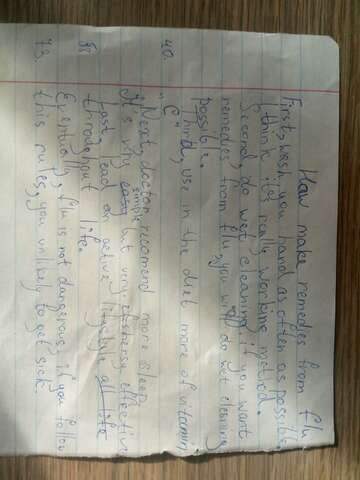 How make remedies from flu
First, wash you hand as often as possible,
I think it's really working method.
Second do wet cleaning. if you want
remedies from flu, you will do wet cleaning
possible.
40. Third, use in the diet more of vitamin
"C"
Next, doctor recomend more sleep
It's very easy simply but very effective
88 Last, lead an active lifestyle
throughout life.
Eventually, flu is not dangerous, if you follow
73. this rules, you unlikely to get sick.